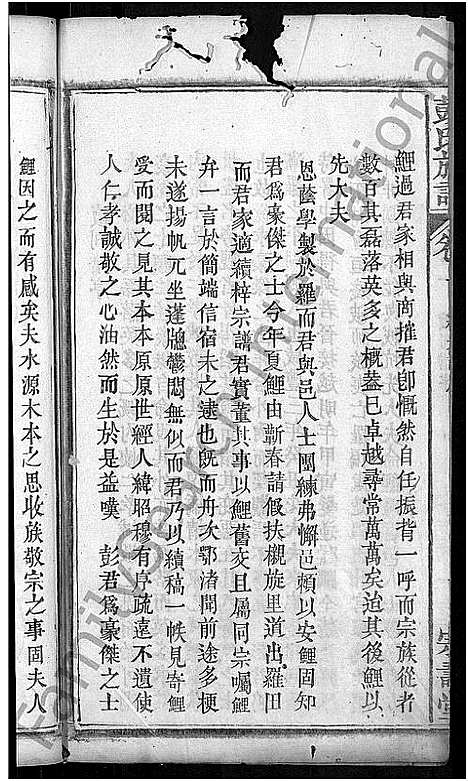 彭氏族譜
鯉過君家相與商搉君卽慨然自任振背一呼而宗族從者
數百其磊落英多之概蓋已卓越尋常萬萬矣迨其後鯉以
先大夫
恩蔭學製於羅而君與邑人士團練弗懈邑賴以安鯉固知
君爲豪傑之士今年夏鯉由蘄春請假扶櫬旋里道出羅田
而君家適續梓宗譜君實董其事以鯉舊交且屬同宗囑鯉
弁一言於簡端信宿未之逮也旣而舟次鄂渚聞前途多梗
未遂揚帆兀坐蓬牕鬱悶無似而君乃以續稿一帙見寄鯉
受而閱之見其本本原原世經人緯昭穆有序疏遠不遺使
人仁孝誠敬之心油然而生於是益嘆 彭君爲豪傑之士
鯉因之而有感矣夫水源木本之思收族敬宗之事固夫人
FamilySearch International